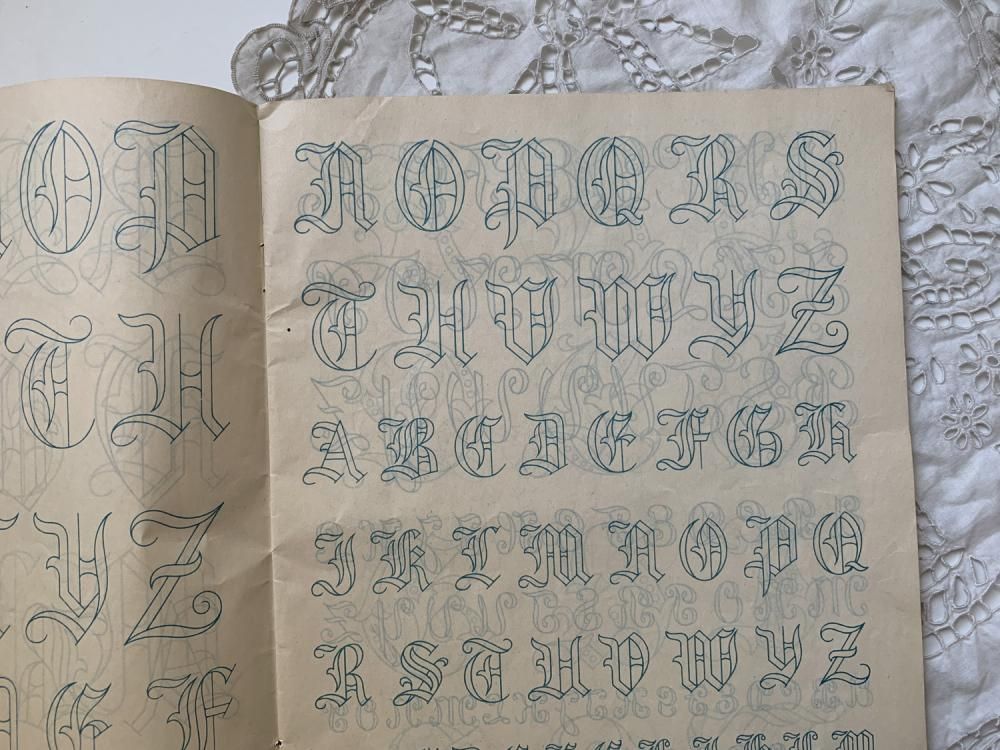 O P
T U
Y Z
G F
N O P Q R S
T U V W Y Z
A B C D E F G H
J K L M N O P Q
R S T U V W Y Z